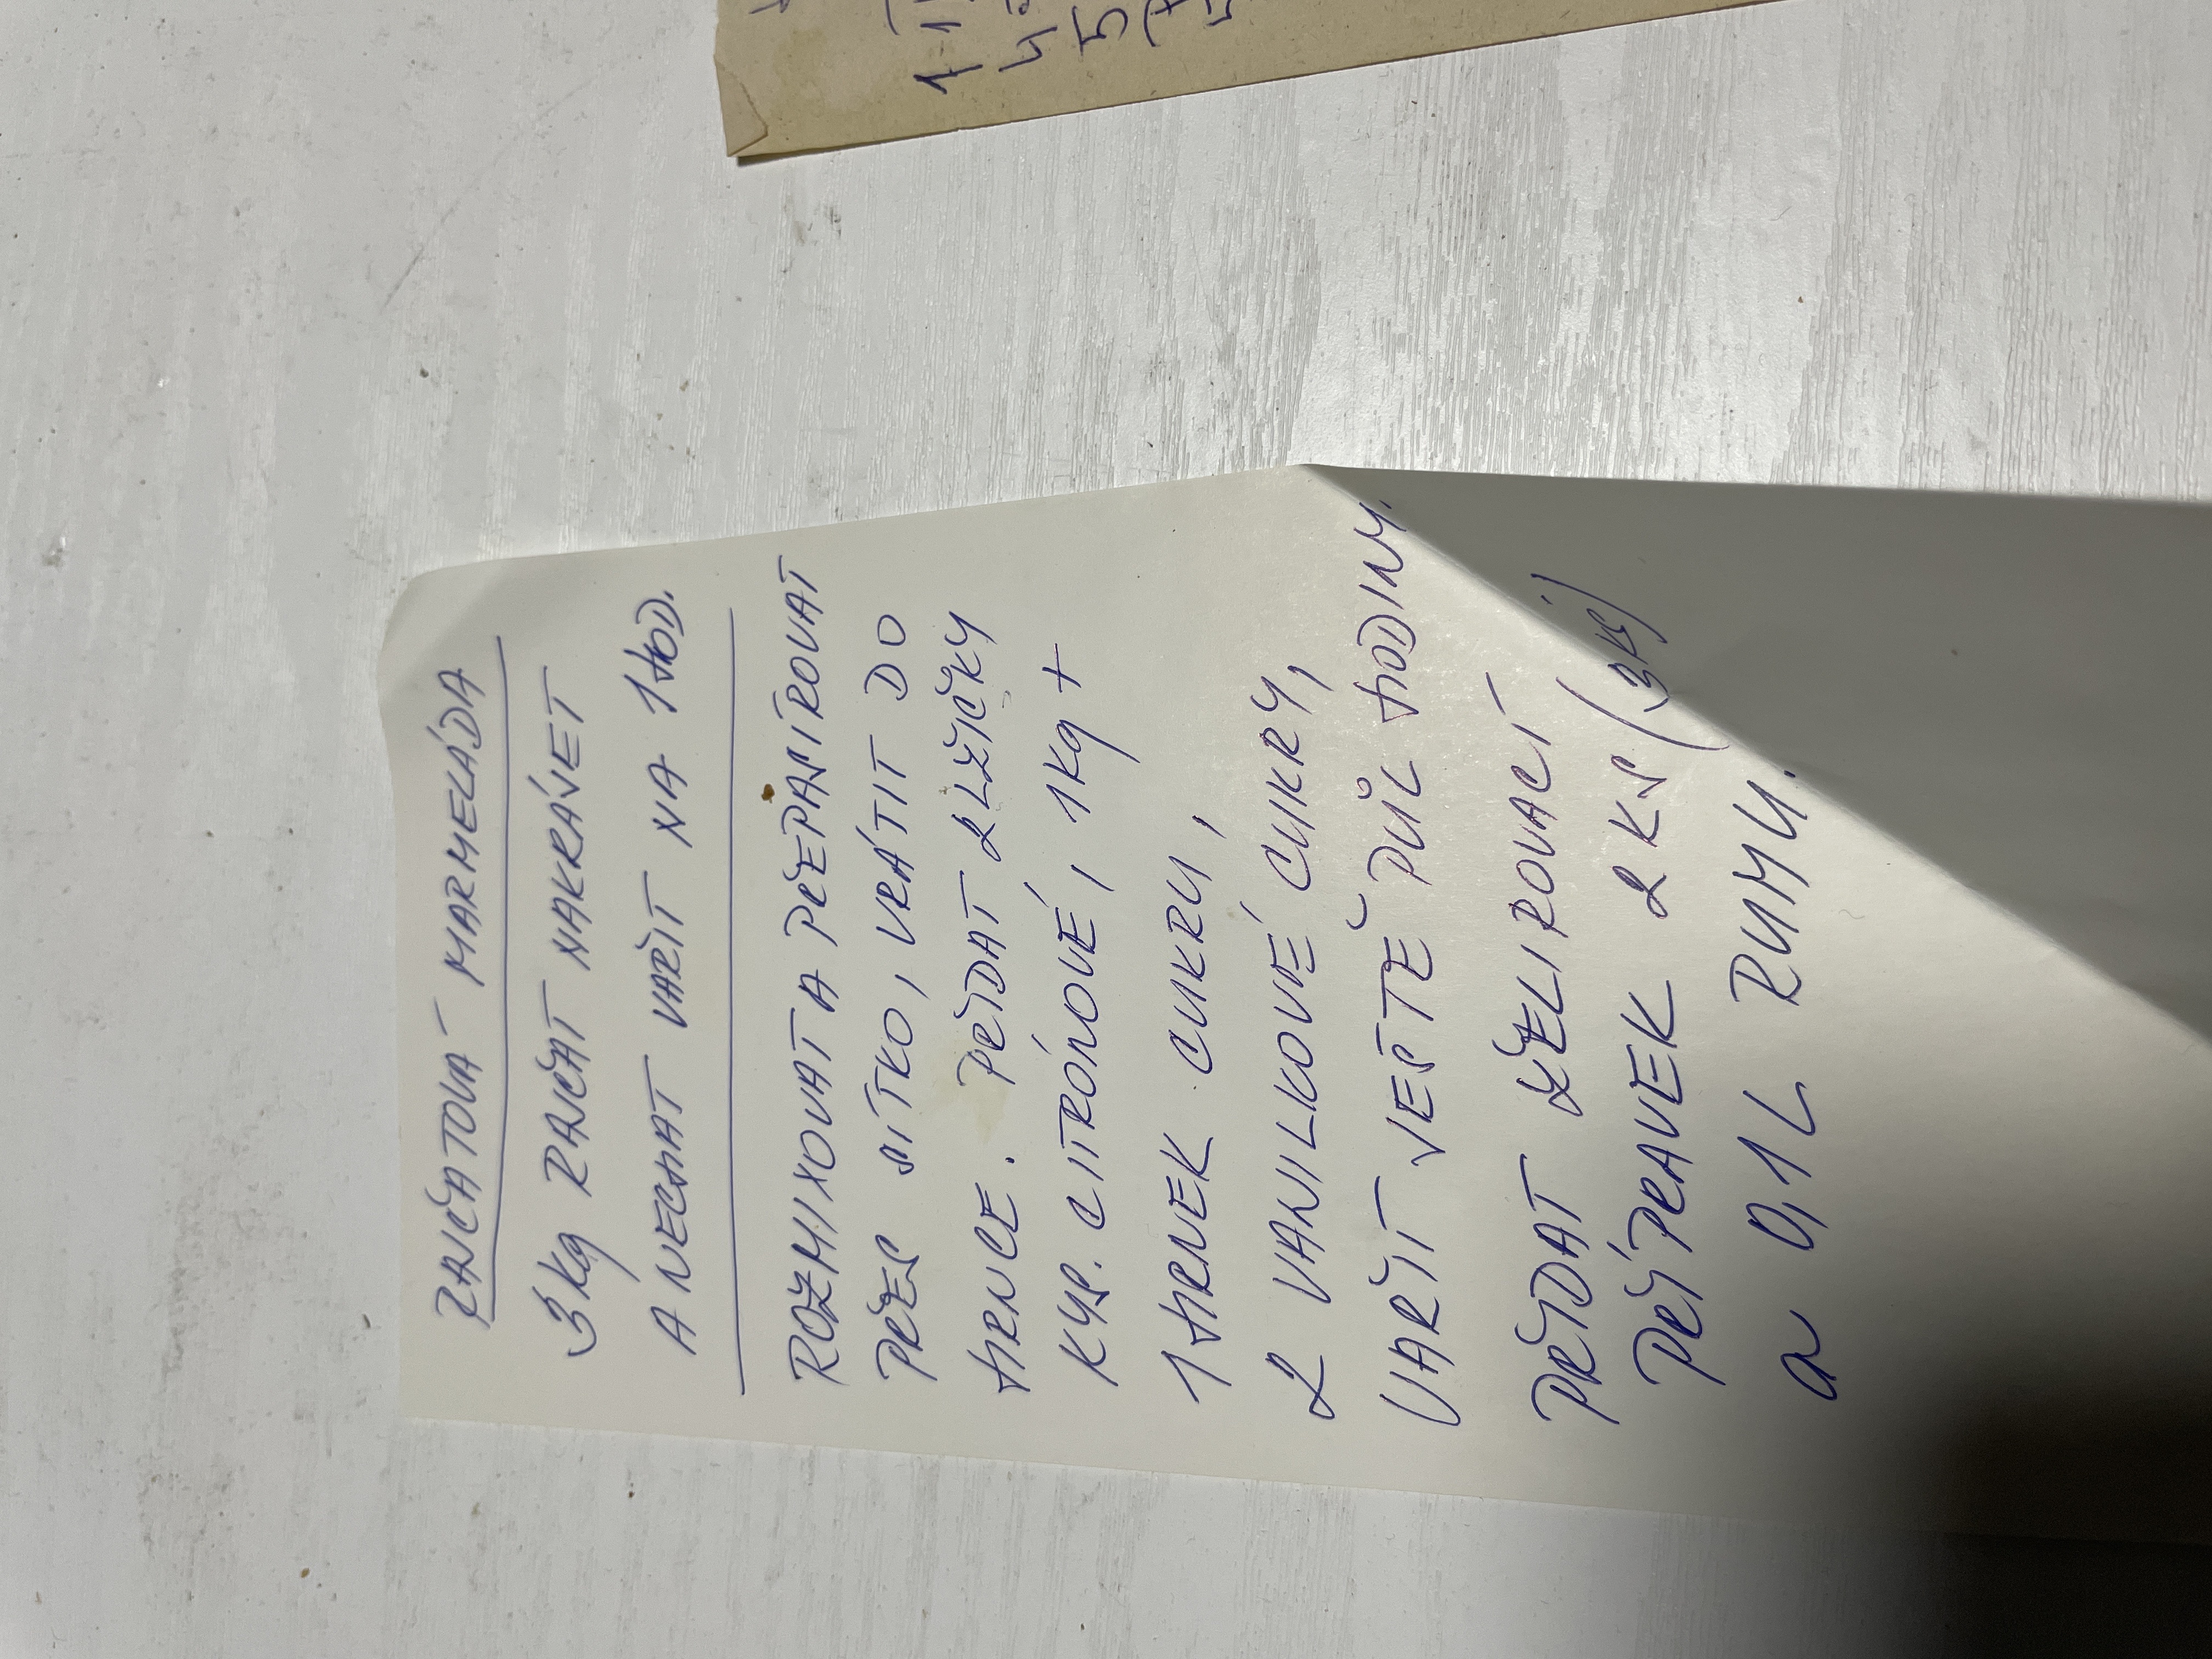 RAJČATOVÁ MARMELÁDA
3kg RAJČAT NAKRÁJET
A NECHAT VAŘIT NA 1 HOD.
ROZMIXOVAT A PŘEPASÍROVAT
PŘES SÍTKO, VRÁTIT DO
HRNCE. PŘIDAT 2 LŽIČKY
KYS. CITRÓNOVÉ, 1kg +
1 HRNEK CUKRU,
2 VANILKOVÉ CUKRY,
VAŘIT JEŠTĚ PŮL HODINY.
PŘIDAT ŽELIROVACÍ
PŘÍPRAVEK 2 KS (3 KS)
a 0,1L RUMU.